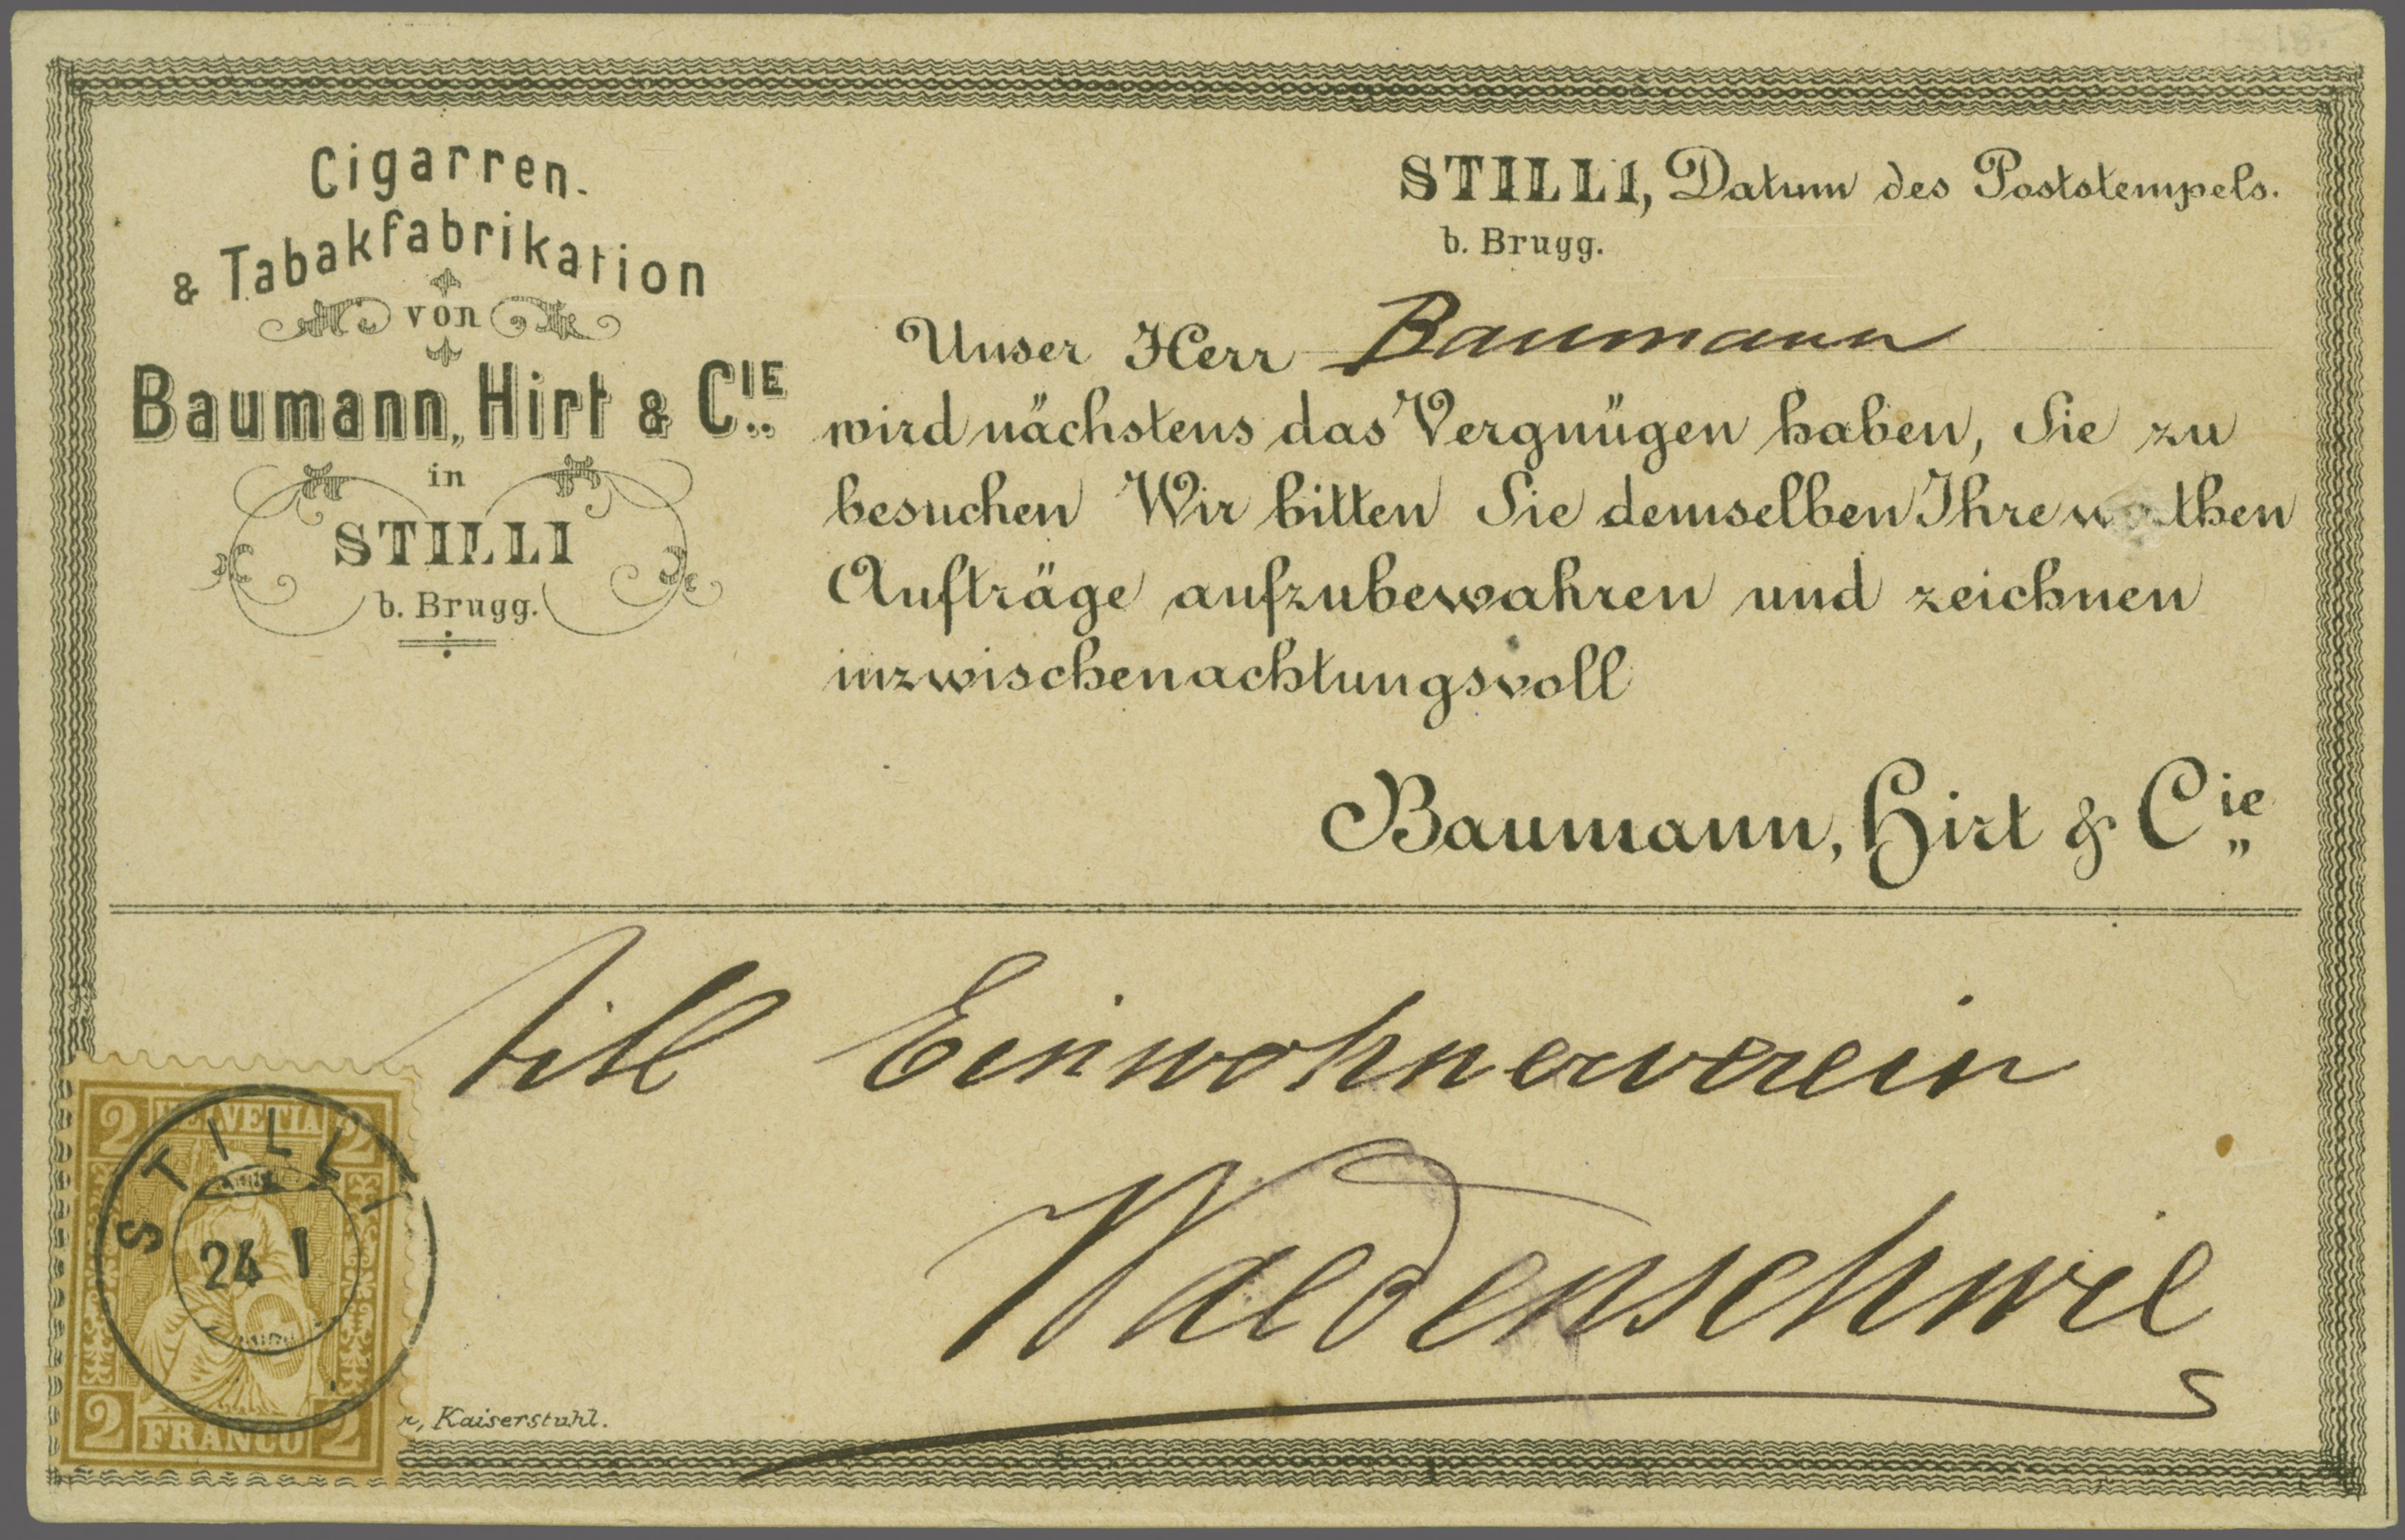 Cigarren-
& Tabakfabrikation
von
Baumann, Hirt & Cie.
in
STILLI
b. Brugg.
STILLI, Datum des Poststempels.
b. Brugg.
Unser Herr Baumann
wird nächstens das Vergnügen haben, Sie zu
besuchen Wir bitten Sie demselben Ihre
Aufträge aufzubewahren und zeichnen
inzwischen achtungsvoll
Baumann, Hirt & Cie
Titl Einwohnerverein
Waldenschwil
2 HELVETIA 2
STILLI
24 I
2 FRANCO 2
r, Kaiserstuhl.